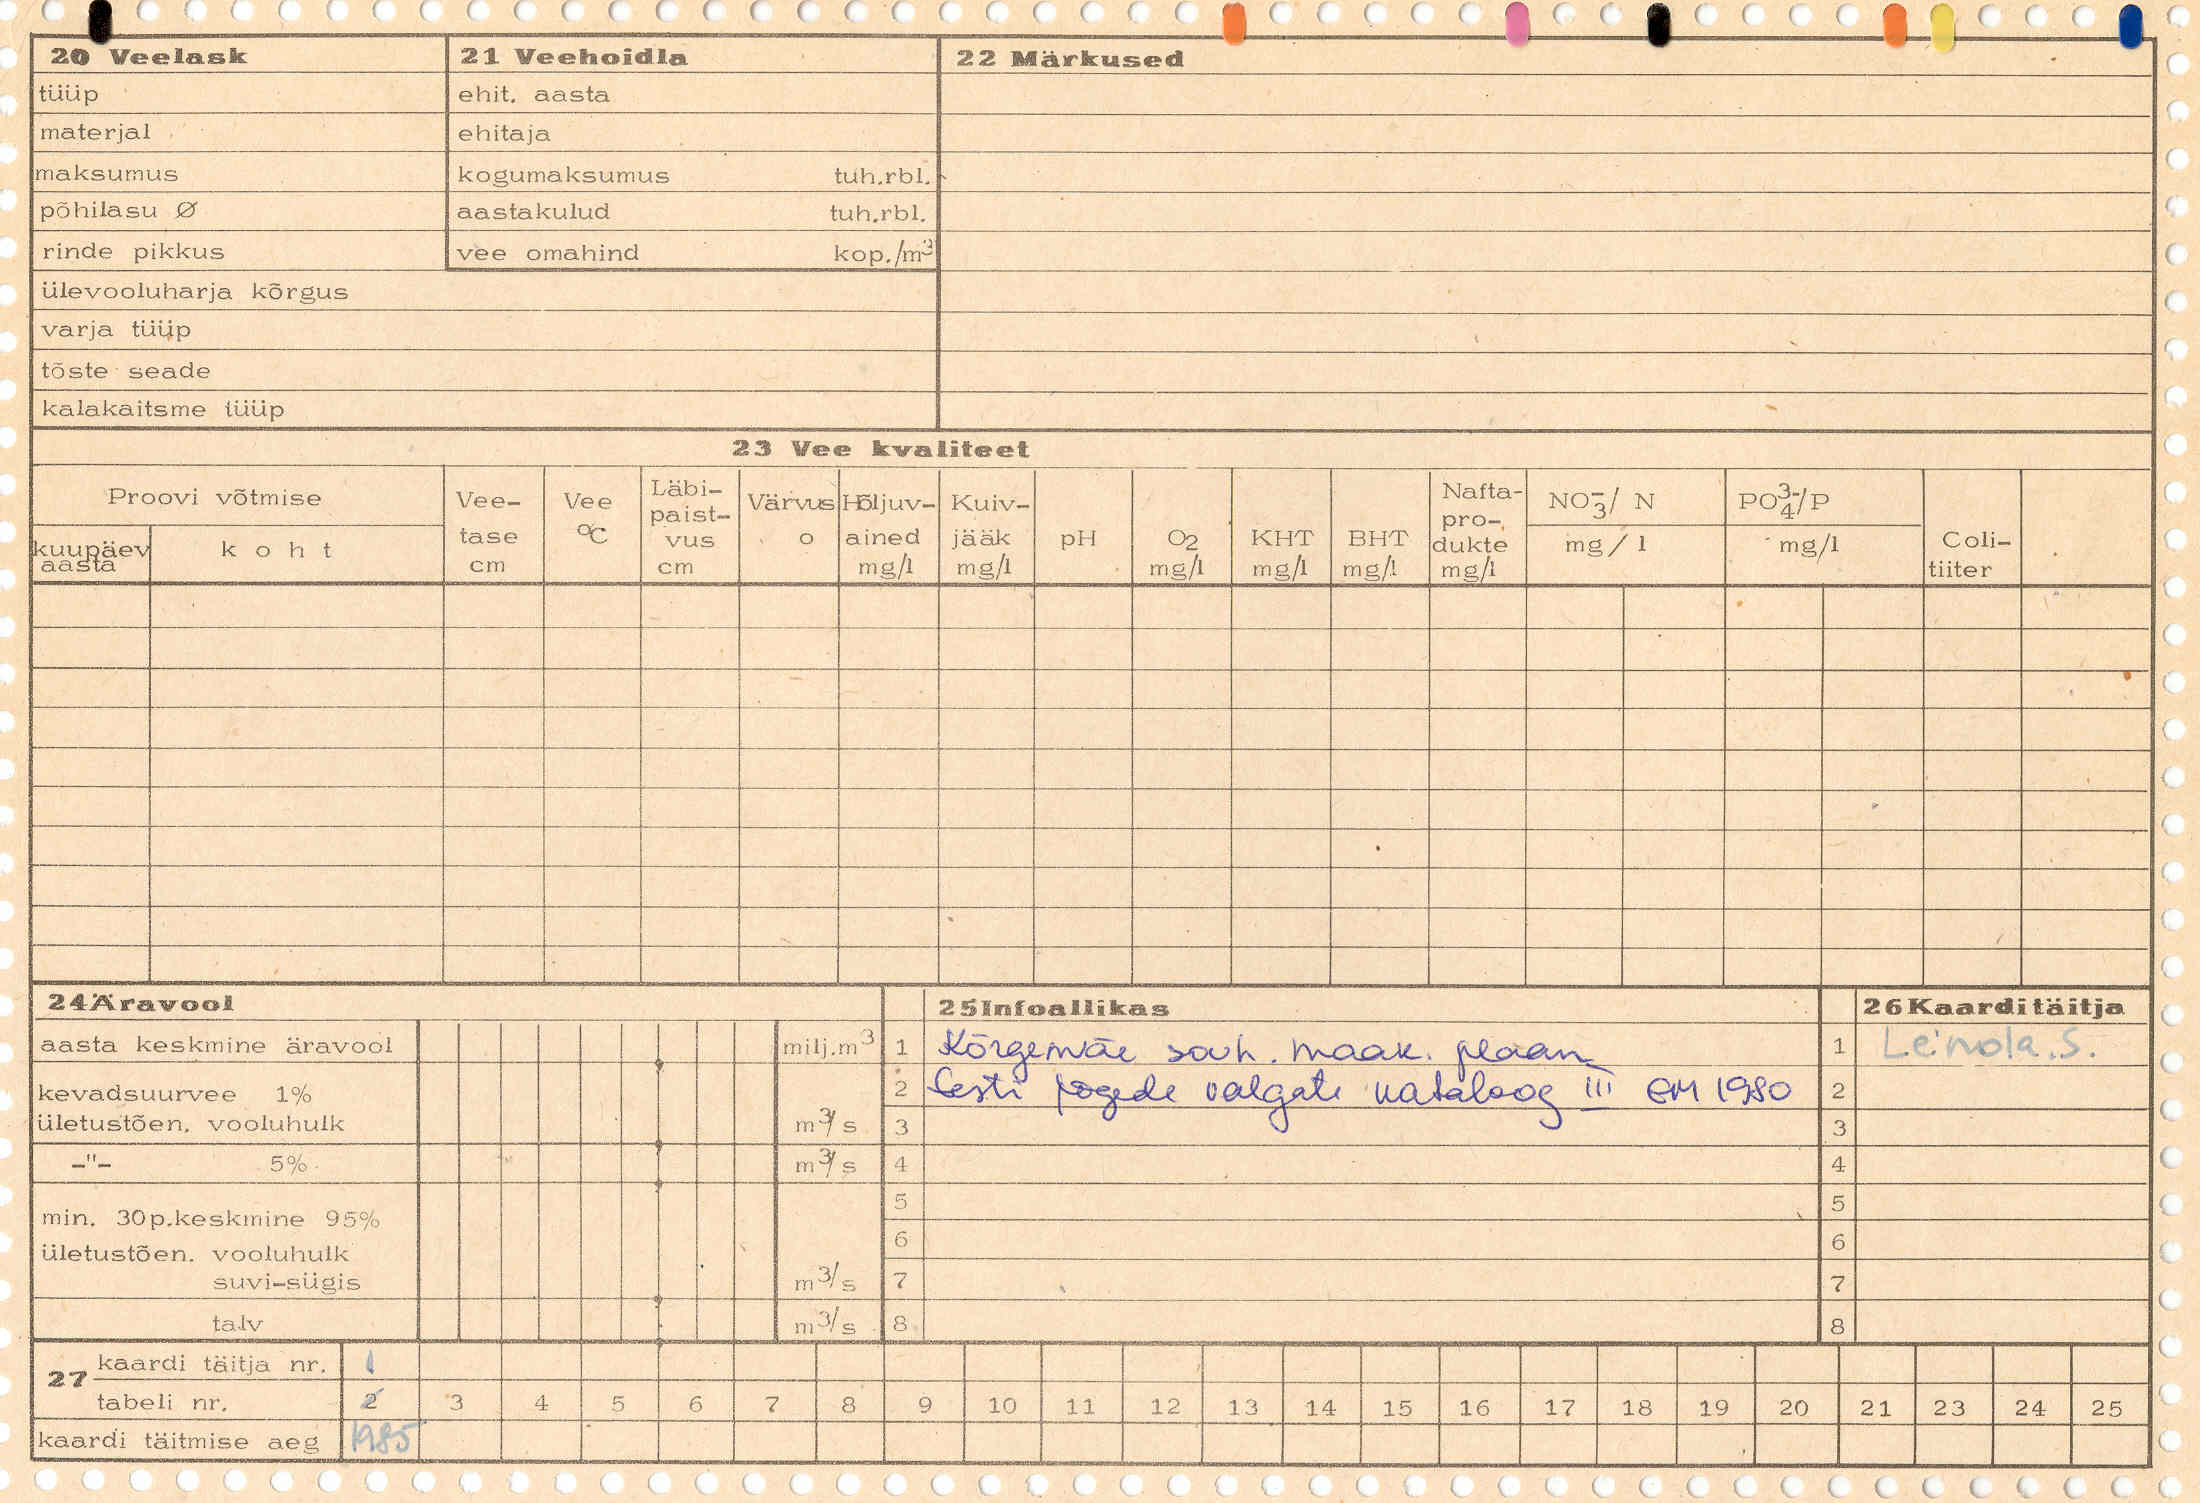 20 Veelask
21 Veehoidla
22 Märkused
tüüp
ehit. aasta
materjal
ehitaja
maksumus
kogumaksumus tuh.rbl.
põhilasu Ø
aastakulud tuh.rbl.
rinde pikkus
vee omahind kop./m³
ülevooluharja kõrgus
varja tüüp
tõste seade
kalakaitsme tüüp
23 Vee kvaliteet
Proovi võtmise
kuupäev
aasta
koht
Vee-
tase
cm
Vee
°C
Läbi-
paist-
vus
cm
Värvus
o
Hõljuv-
ained
mg/l
Kuiv-
jääk
mg/l
pH
O₂
mg/l
KHT
mg/l
BHT
mg/l
Nafta-
pro-
dukte
mg/l
NO₃⁻/ N
mg / l
PO₄³⁻/P
mg/l
Coli-
tiiter
24 Äravool
25 Infoallikas
26 Kaarditäitja
aasta keskmine äravool milj.m³
1 Kõrgemäe sovh. maak. plaan
1 Leinola.S.
kevadsuurvee 1%
2 Eesti jõgede valgate kataloog III EM 1980
2
ületustõen. vooluhulk m³/s
3
3
-"- 5% m³/s
4
4
5
5
min. 30p.keskmine 95%
6
6
ületustõen. vooluhulk
suvi-sügis m³/s
7
7
talv m³/s
8
8
27
kaardi täitja nr. 1
tabeli nr. 2 3 4 5 6 7 8 9 10 11 12 13 14 15 16 17 18 19 20 21 23 24 25
kaardi täitmise aeg 1985